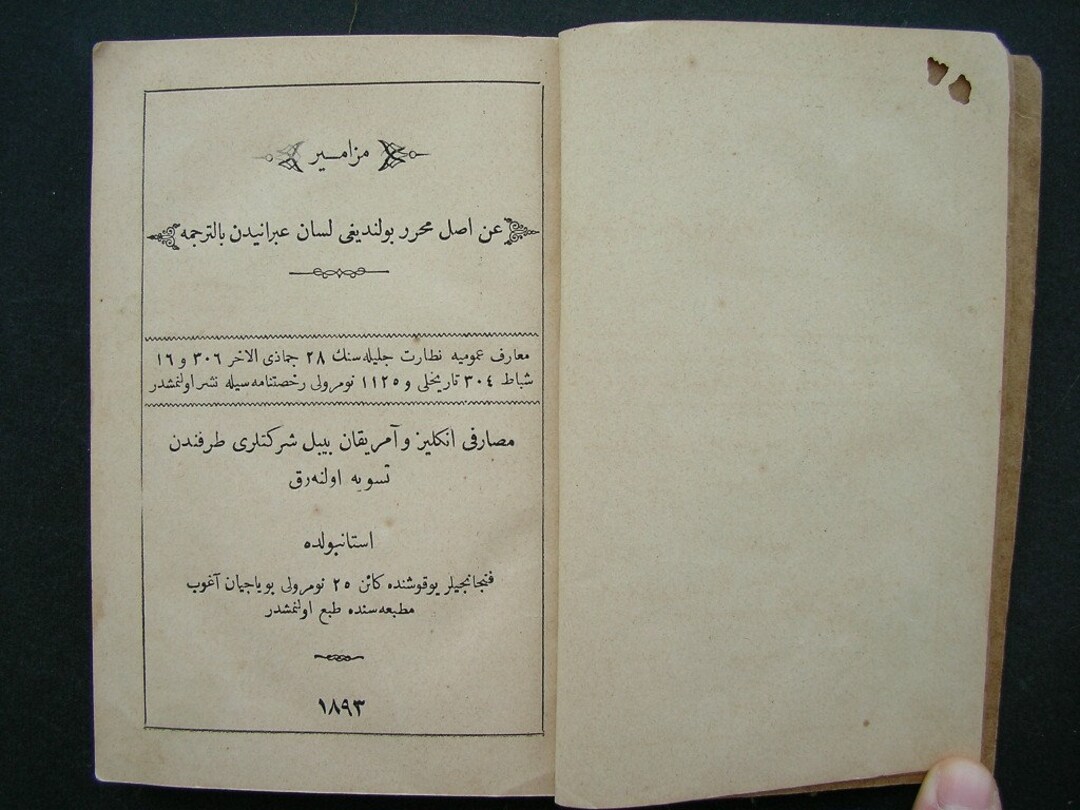 مزامير
عن اصل محرر بولنديغى لسان عبرانيدن بالترجمه
معارف عموميه نظارت جليله‌سنك ٢٨ جماذى الاخر ٣٠٦ و ١٦
شباط ٣٠٤ تاريخلى و ١١٢٥ نومرولى رخصتنامه‌سيله نشر اولنمشدر
مصارفى انكليز و آمريقان بيبل شركتلرى طرفندن
تسويه اولنه‌رق
استانبولده
فنجانجيلر يوقوشنده كائن ٢٥ نومرولى بوياجيان آغوب
مطبعه‌سنده طبع اولنمشدر
١٨٩٣